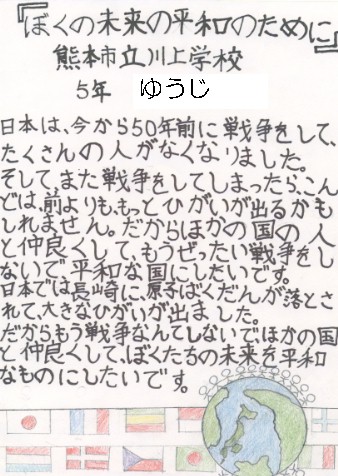 『ぼくの未来の平和のために』
熊本市立川上学校
5年 ゆうじ
日本は、今から50年前に戦争をして、
たくさんの人がなくなりました。
そして、また戦争をしてしまったら、こん
どは、前よりも、もっとひがいが出るかも
しれません。だからほかの国の人
と仲良くして、もうぜったい戦争をし
ないで平和な国にしたいです。
日本では長崎に、原子ばくだんが落とさ
れて、大きなひがいが出ました。
だからもう戦争なんてしないで、ほかの国
と仲良くして、ぼくたちの未来を平和
なものにしたいです。